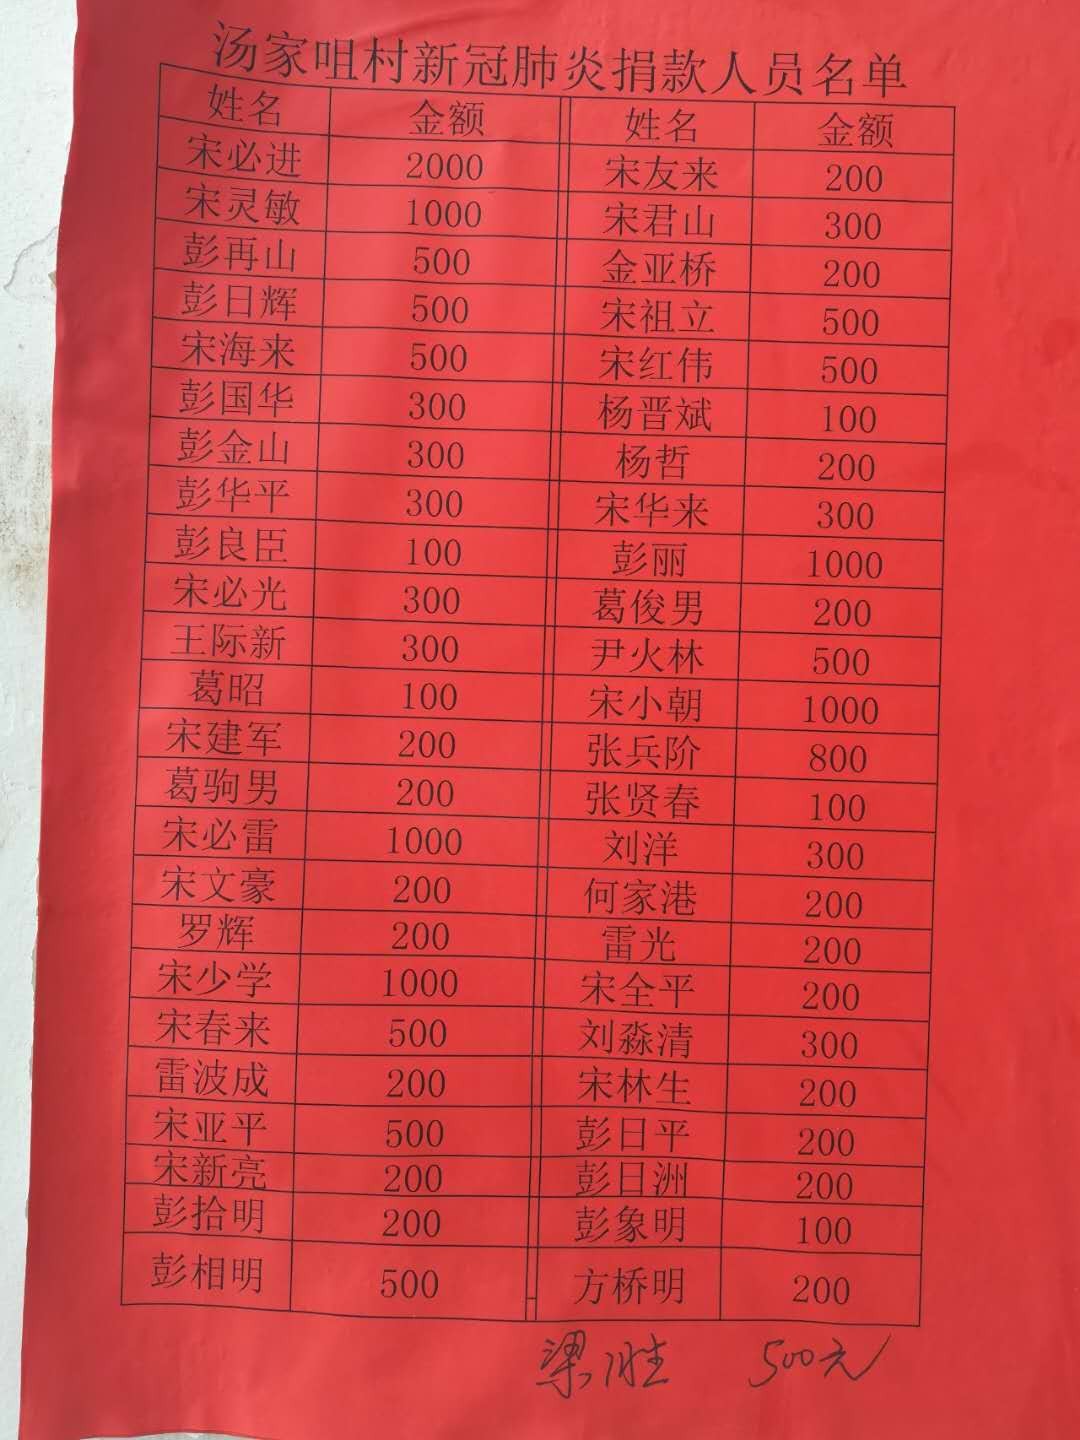 汤家咀村新冠肺炎捐款人员名单
姓名 金额 姓名 金额
宋必进 2000 宋友来 200
宋灵敏 1000 宋君山 300
彭再山 500 金亚桥 200
彭日辉 500 宋祖立 500
宋海来 500 宋红伟 500
彭国华 300 杨晋斌 100
彭金山 300 杨哲 200
彭华平 300 宋华来 300
彭良臣 100 彭丽 1000
宋必光 300 葛俊男 200
王际新 300 尹火林 500
葛昭 100 宋小朝 1000
宋建军 200 张兵阶 800
葛驹男 200 张贤春 100
宋必雷 1000 刘洋 300
宋文豪 200 何家港 200
罗辉 200 雷光 200
宋少学 1000 宋全平 200
宋春来 500 刘淼清 300
雷波成 200 宋林生 200
宋亚平 500 彭日平 200
宋新亮 200 彭日洲 200
彭拾明 200 彭象明 100
彭相明 500 方桥明 200
梁胜 500元